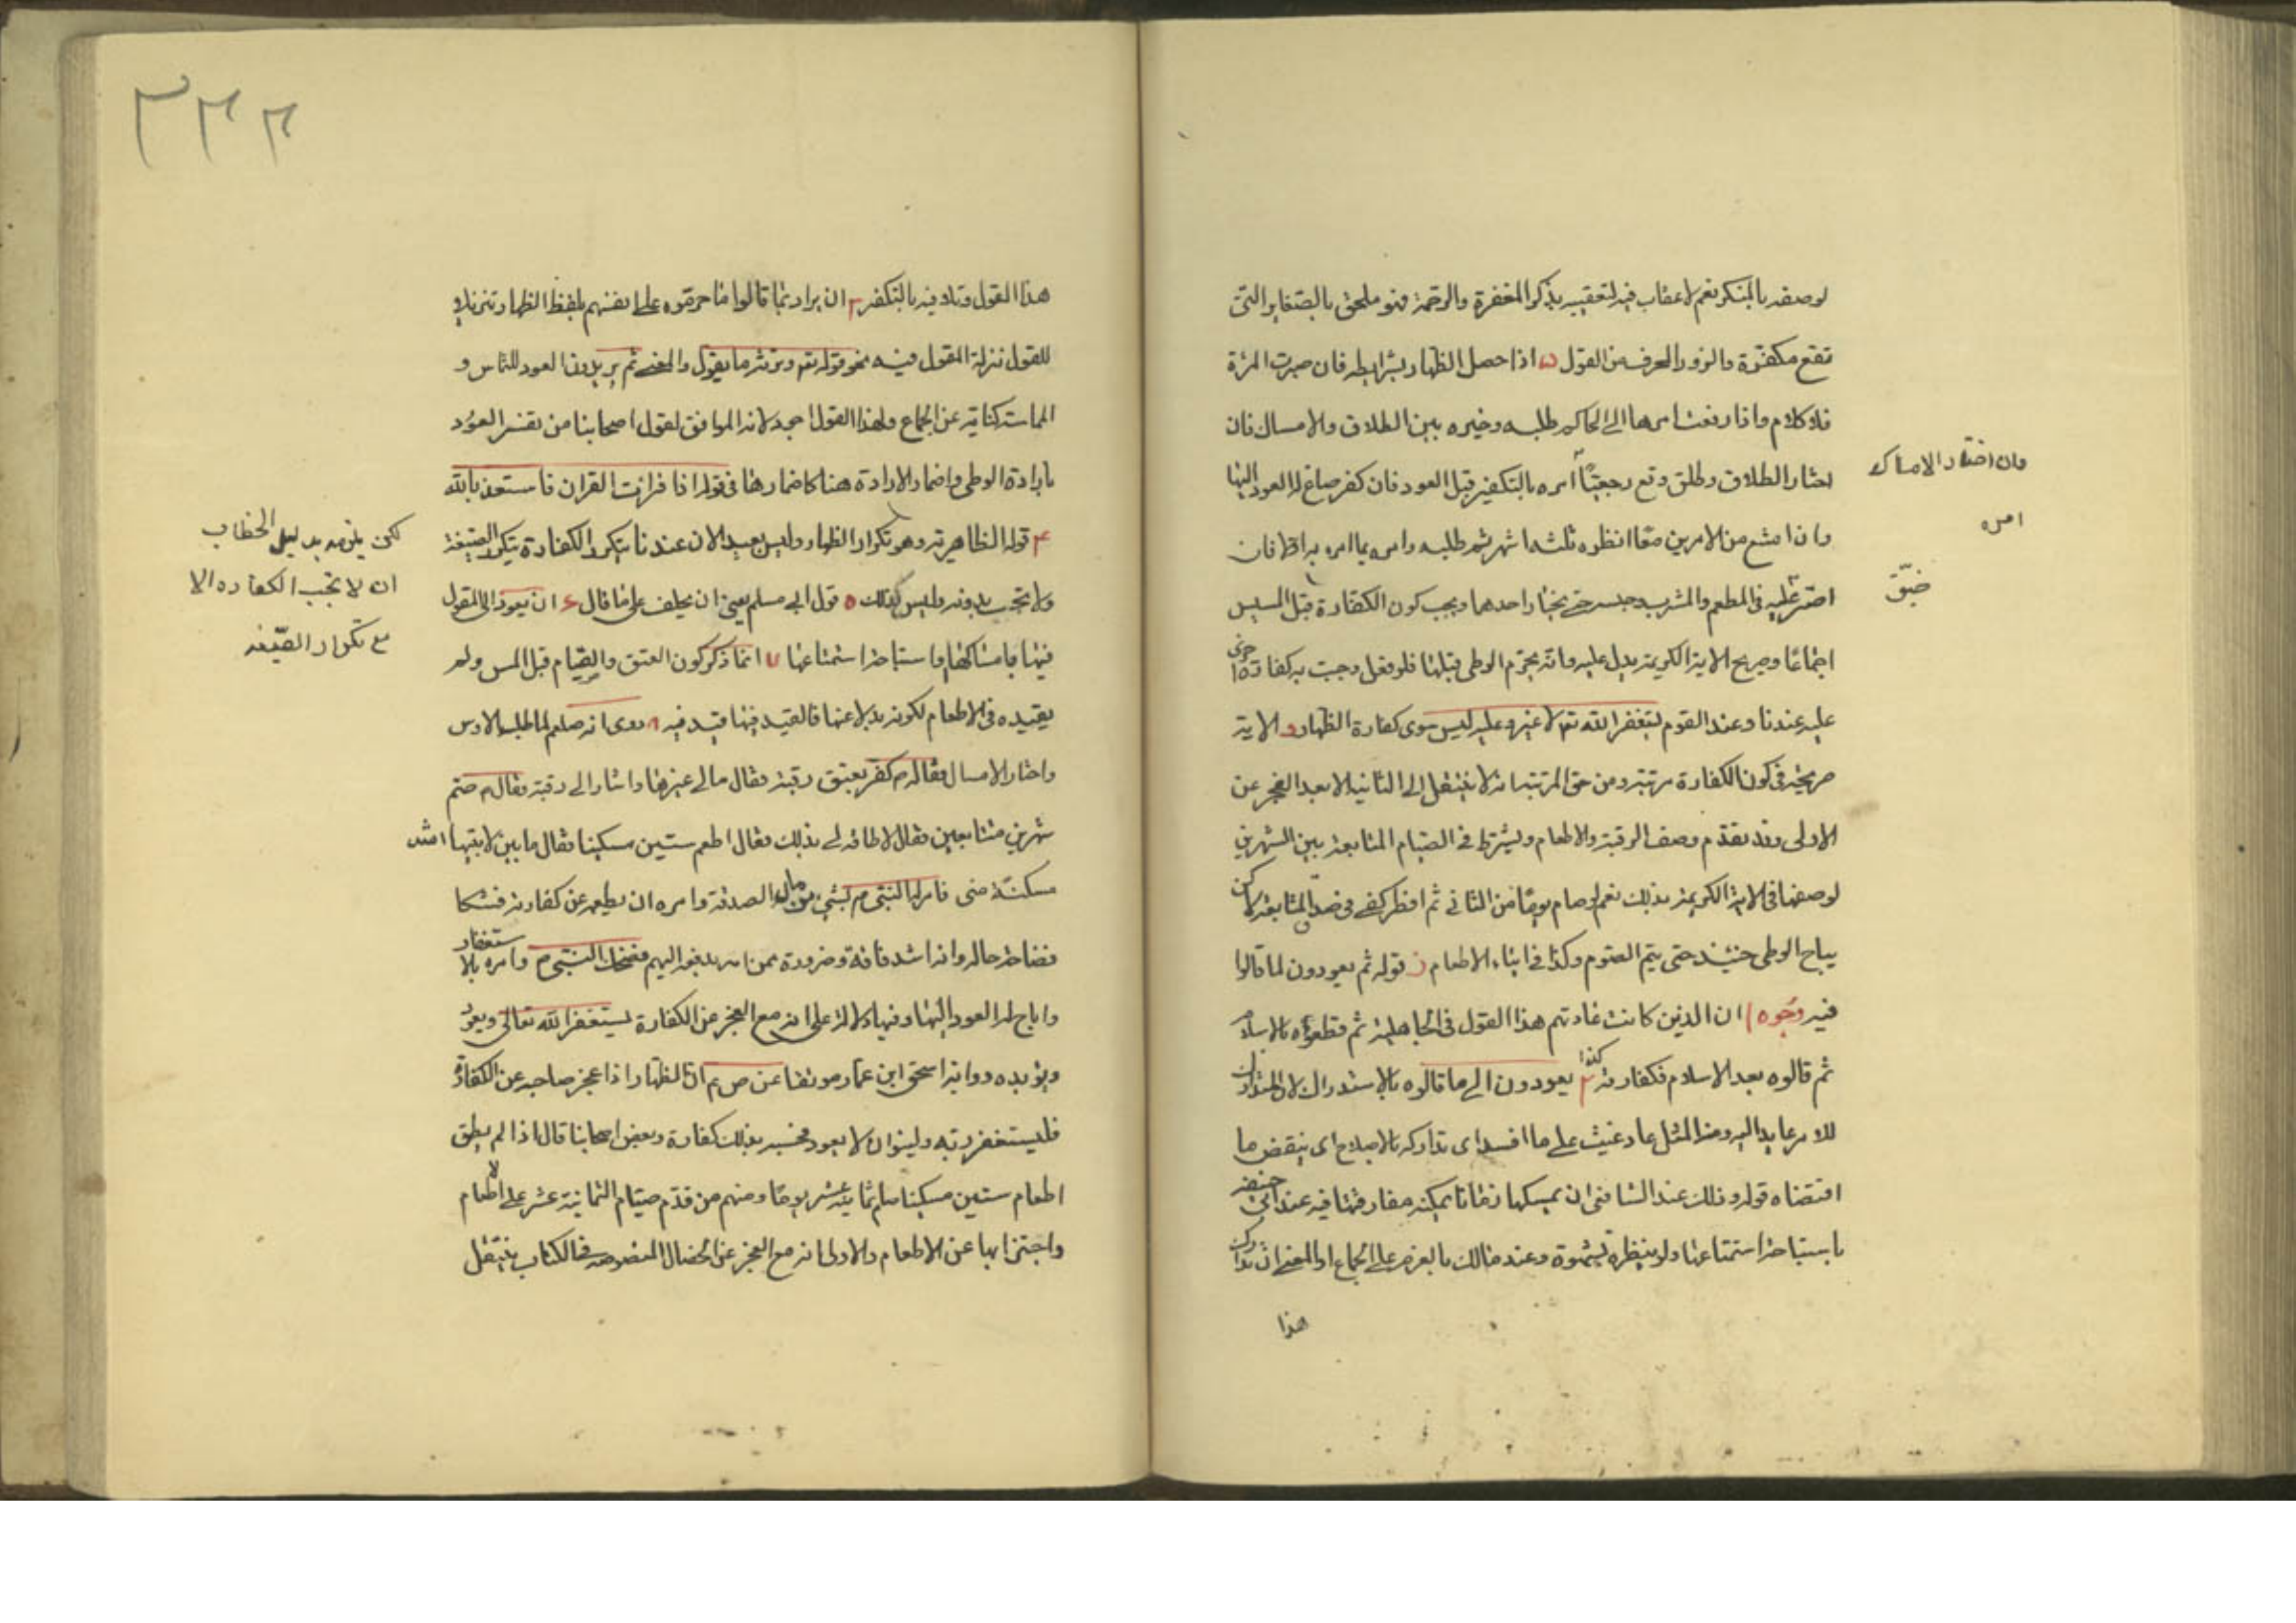 لوصفه بالمنكر نعم لا عقاب فيه لتعقيبه بذكر المغفرة والرحمة فهو ملحق بالصغاير التى
تقع مكفرة والزور المحرف من القول ه اذا حصل الظهار بشرايطه فان صبرت المرئة
فلا كلام واذا رفعت امرها الى الحاكم طلبه وخيره بين الطلاق والامساك فان
اختار الطلاق وطلق وقع رجعيا امره بالتكفير قبل العود فان كفر صاغ له العود اليها
وان اختار الامساك
امره
وان امتنع من الامرين معا انظره ثلثه اشهر ثم طلبه وامره بما امره به اولا فان
اصر عليه فى المطعم والمشرب وحبسه حتى يختار احدهما ويجب كون الكفارة قبل المسيس
ضيق
اجماعا وصريح الاية الكريمة يدل عليه وانه يحرم الوطى قبلها فلو فعل وجبت به كفارة اخرى
عليه عندنا وعند القوم ليتغفر الله تع لا غير وعليه ليس سوى كفارة الظهار و الاية
صريحة فى كون الكفارة مرتبة ومن حق المرتبة انه لا ينتقل الى الثانية الا بعد العجز عن
الاولى وقد تقدم وصف الرقبة والاطعام ويشترط فى الصيام المتابعة بين الشهرين
لوصفها فى الاية الكريمة بذلك نعم لو صام يوما من الثانى ثم افطر كفى فى صدق المتابعة لكن لا
يباح الوطى حينئذ حتى يتم الصوم وكذا فى اثناء الاطعام ز قوله ثم يعودون لما قالوا
فيه وجوه ا ان الذين كانت عادتهم هذا القول فى الجاهلية ثم قطعوه بالاسلام
ثم قالوه بعد الاسلام فكفارته كذا ٢ يعودون الى ما قالوه بالاستدراك لان المتدارك
للامر عايد اليه ومنه المثل عاد غيث على ما افسد اى تداركه بالاصلاح اى ينقض ما
اقتضاه قوله وذلك عند الشافعى ان يمسكها زمانا يمكنه مفارقتها فيه عند ابى حنيفه
باستباحة استمتاعها ولو بنظرة بشهوة وعند مالك بالعزم على الجماع او المعنى ان تدارك
هذا
٣٣٣
هذا القول وتلافيه بالتكفر ٣ ان يراد بما قالوا ما حرموه على انفسهم بلفظ الظهار تنزيلا
للقول منزلة المقول فيه نحو قوله تع ونرثه ما يقول والمعنى ثم يريدون العود للتماس و
المماسة كناية عن الجماع وهذا القول اجود لانه الموافق لقول اصحابنا من تفسر العود
بارادة الوطى واضمار الارادة هنا كاضمارها فى قوله اذا قرات القران فاستعذ بالله
٤ قوله الظاهرية وهو تكرار الظهار وليس بعيد الان عندنا يتكرر الكفارة بتكرر الصيغة
لكن يلزمه بدليل الخطاب
ان لا تجب الكفاره الا
مع تكرار الصيغه
ولا تجب بدونه وليس كذلك ٥ قول ابى مسلم يعنى ان يحلف على ما قال ٦ ان يعود الى المقول
فيها بامساكها واستباحة استمتاعها ٧ انما ذكر كون العتق والصيام قبل المس ولم
يقيده فى الاطعام لكونه بدلا عنها فالقيد فيها قيد فيه ٨ روى انه صلعم لما طلب الاوس
واختار الامساك فقال له م كفر بعتق رقبة فقال مالى غيرها واشار الى رقبة فقال م صم
شهرين متتابعين فقال لا طاقه لى بذلك فقال اطعم ستين مسكينا فقال ما بين لابتيها اشد
مسكنة منى فامر له النبى م بشئ من مال الصدقة وامره ان يطعم عن كفارته فشكا
خصاصة حاله وانه اشد فاقة وضرورة ممن امر بدفعه اليهم فضحك النبى م وامره بالاستغفار
واباح له العود اليها وفيها دلالة على انه مع العجز عن الكفارة يستغفر الله تعالى ويعود
ويؤيده رواية اسحق ابن عمار موثقا عن ص م ان الظهار اذا عجز صاحبه عن الكفارة
فليستغفر ربه ولينو ان لا يعود فحسبه بذلك كفارة وبعض اصحابنا قال اذا لم يطق
اطعام ستين مسكينا صام ثمانية عشر يوما ومنهم من قدم صيام الثمانية عشر على الاطعام
واجتزا بها عن الاطعام والاولى انه مع العجز عن الخصال المنصوصه فى الكتاب ينتقل